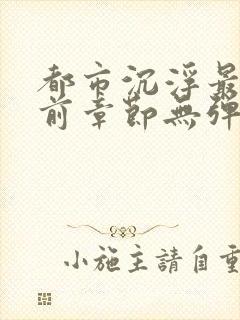 都市沉浮最
前章節無彈
小施主請自重